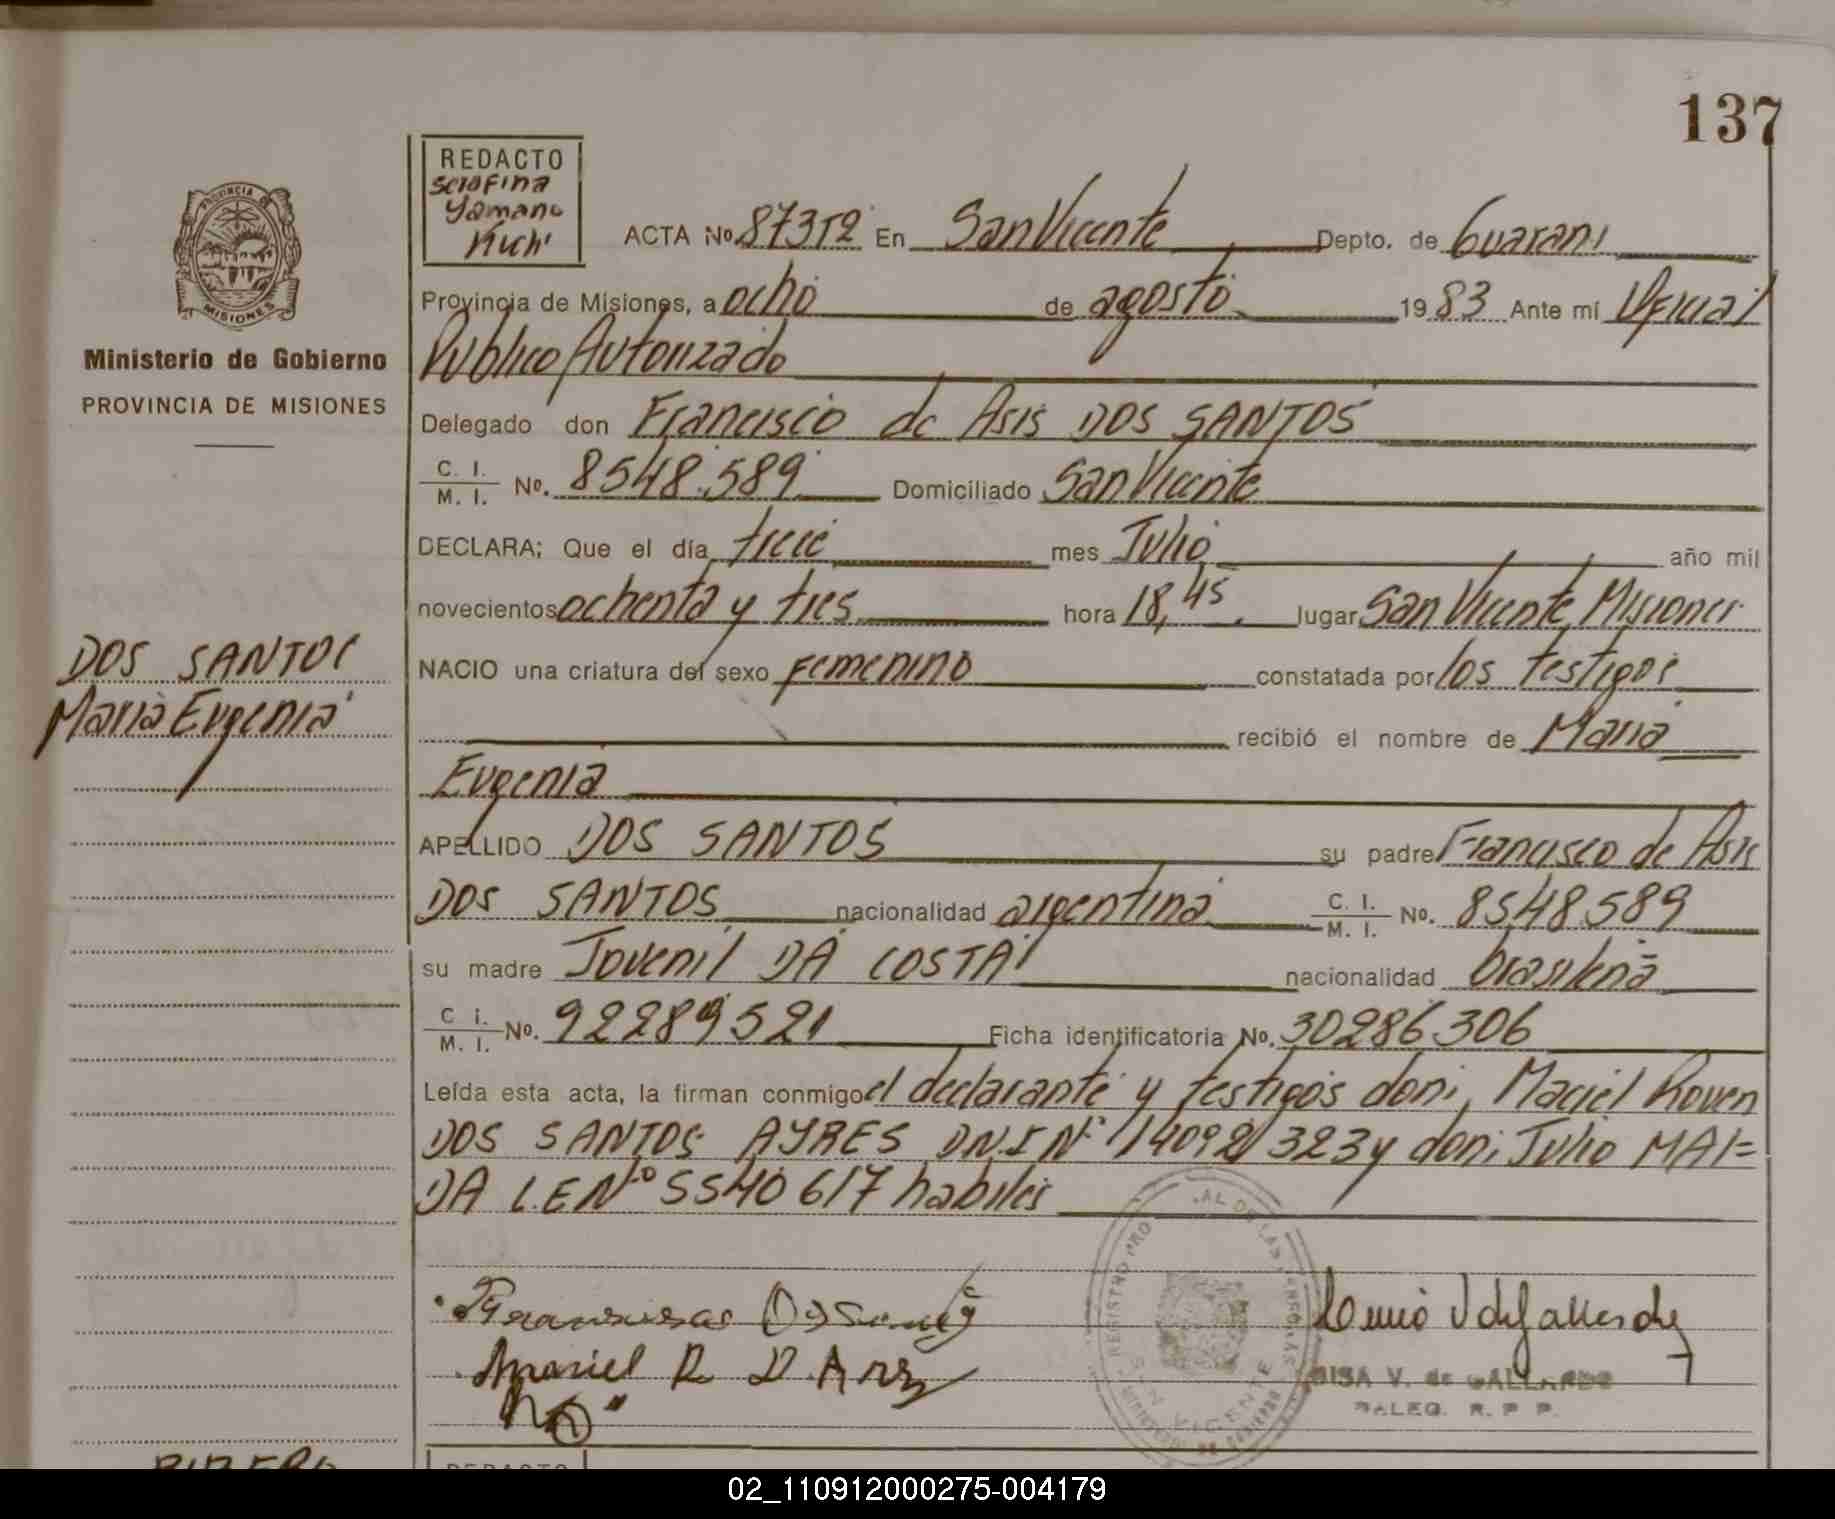 137
REDACTO
Serafina
Yamano
Kichi
ACTA No. 87352 En San Vicente Depto. de Guarani
Provincia de Misiones, a ocho de agosto 1983 Ante mi Oficial
Publico Autorizado
Delegado don Francisco de Asis DOS SANTOS
C. I.
M. I. No. 8548.589 Domiciliado San Vicente
DECLARA; Que el día trece mes Julio año mil
novecientos ochenta y tres hora 18,45 lugar San Vicente, Misiones
NACIO una criatura del sexo femenino constatada por los testigos
recibió el nombre de Maria
Eugenia
APELLIDO DOS SANTOS su padre Francisco de Asis
DOS SANTOS nacionalidad argentina C. I.
M. I. No. 8548589
su madre Jovenil DA COSTA nacionalidad brasileña
C i.
M. I. No. 92289521 Ficha identificatoria No. 30286306
Leída esta acta, la firman conmigo el declarante y testigos don; Maciel Roven
DOS SANTOS AYRES DNI Nº 14092323 y don; Julio MAI=
DA L.E Nº 5540617 habiles
PROVINCIA
MISIONES
Ministerio de Gobierno
PROVINCIA DE MISIONES
DOS SANTOS
Maria Eugenia
REGISTRO PRO AL DE LAS PERSONAS
SAN VICENTE
V. de GALLARDO
R. P P.
REDACTO
02_110912000275-004179